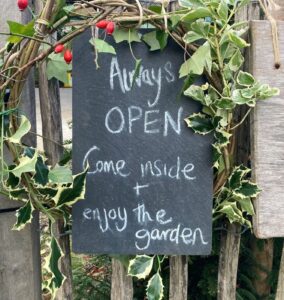 Always
OPEN
Come inside
+
enjoy the
garden